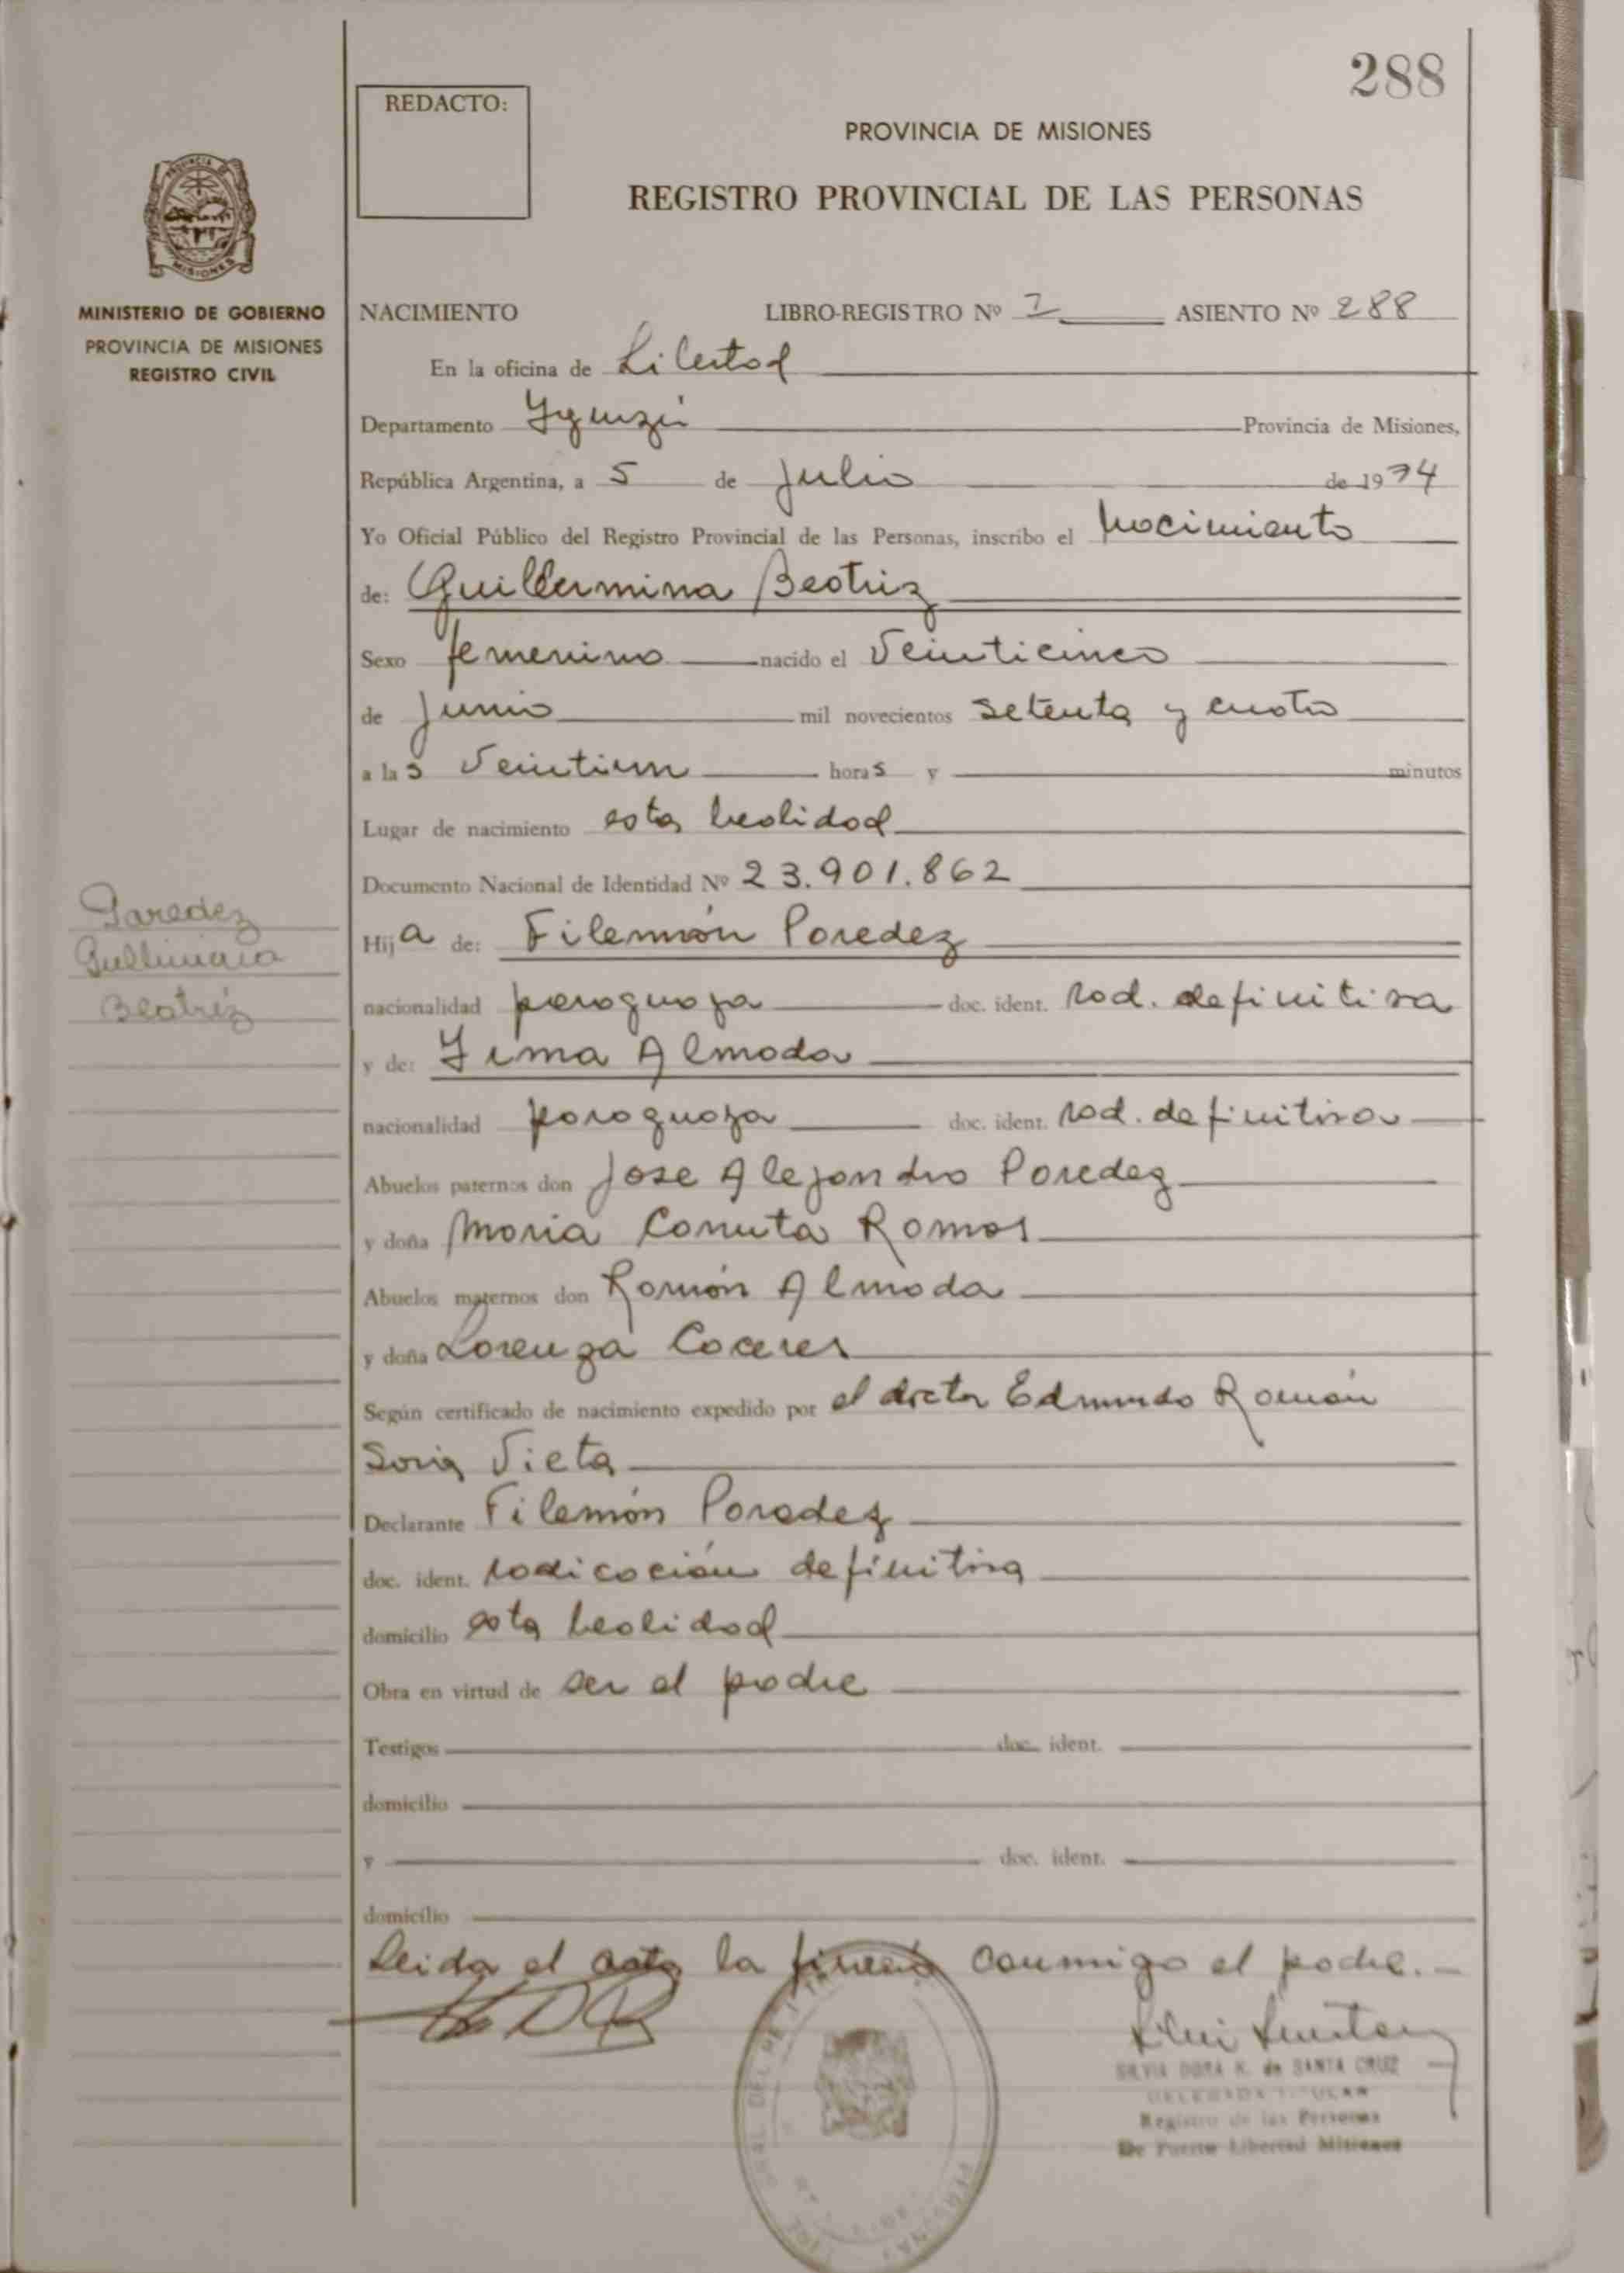 288
REDACTO:
PROVINCIA DE MISIONES
REGISTRO PROVINCIAL DE LAS PERSONAS
PROVINCIA DE
MISIONES
MINISTERIO DE GOBIERNO
PROVINCIA DE MISIONES
REGISTRO CIVIL
NACIMIENTO LIBRO-REGISTRO Nº 1 ASIENTO Nº 288
En la oficina de Libertad
Departamento Yguazú Provincia de Misiones,
República Argentina, a 5 de Julio de 1974
Yo Oficial Público del Registro Provincial de las Personas, inscribo el nacimiento
de: Guillermina Beatriz
Sexo femenino nacido el Veinticinco
de Junio mil novecientos setenta y cuatro
a las Veintiun horas y minutos
Lugar de nacimiento esta localidad
Documento Nacional de Identidad Nº 23.901.862
Hija de: Filemón Paredez
nacionalidad paraguaya doc. ident. rad. definitiva
y de: Irma Almada
nacionalidad paraguaya doc. ident. rad. definitiva
Abuelos paternos don Jose Alejandro Paredez
y doña Maria Ramos
Abuelos maternos don Román Almada
y doña Lorenza Caceres
Según certificado de nacimiento expedido por el doctor Edmundo Román
Soria Vieta
Declarante Filemón Paredez
doc. ident. radicación definitiva
domicilio esta localidad
Obra en virtud de ser el padre
Testigos doc. ident.
domicilio
y doc. ident.
domicilio
Leida el acta la firma conmigo el padre.-
SILVIA DORA K. de SANTA CRUZ
DELEGADA TITULAR
Registro de las Personas
De Puerto Libertad Misiones
Paredez
Gullimiaia
Beatriz